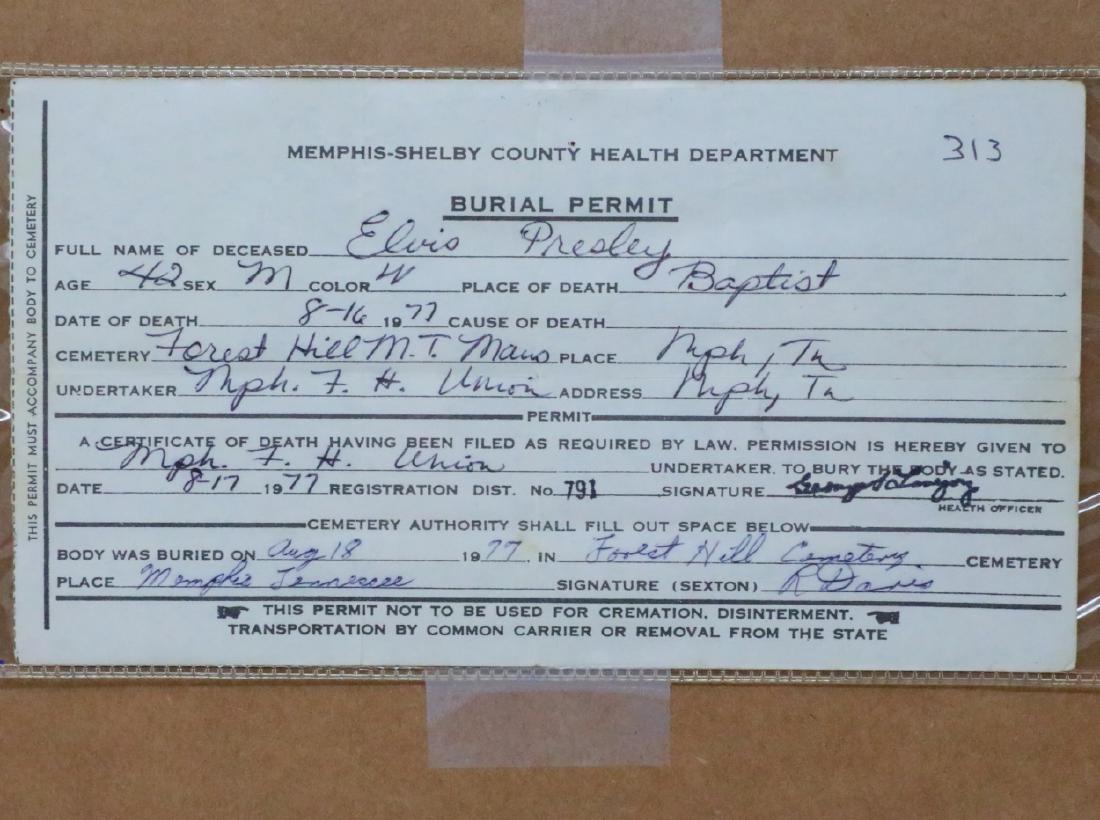 MEMPHIS-SHELBY COUNTY HEALTH DEPARTMENT 313
BURIAL PERMIT
FULL NAME OF DECEASED Elvis Presley
AGE 42 SEX M COLOR W PLACE OF DEATH Baptist
DATE OF DEATH 8-16 1977 CAUSE OF DEATH
CEMETERY Forest Hill M.T. Maus PLACE Mph, Tn
UNDERTAKER Mph. F. H. Union ADDRESS Mph, Tn
PERMIT
A CERTIFICATE OF DEATH HAVING BEEN FILED AS REQUIRED BY LAW. PERMISSION IS HEREBY GIVEN TO
Mph. F. H. Union UNDERTAKER. TO BURY THE BODY AS STATED.
DATE 8-17 1977 REGISTRATION DIST. No. 791 SIGNATURE
HEALTH OFFICER
CEMETERY AUTHORITY SHALL FILL OUT SPACE BELOW
BODY WAS BURIED ON Aug 18 1977 IN Forest Hill Cemetery. CEMETERY
PLACE Memphis Tennessee SIGNATURE (SEXTON) R Davis
THIS PERMIT NOT TO BE USED FOR CREMATION, DISINTERMENT.
TRANSPORTATION BY COMMON CARRIER OR REMOVAL FROM THE STATE
THIS PERMIT MUST ACCOMPANY BODY TO CEMETERY